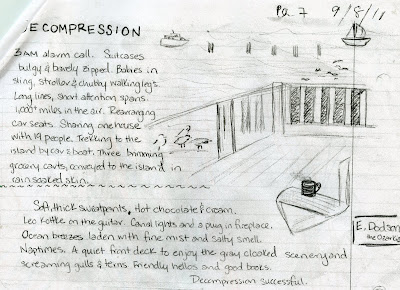 Pg. 7 9/8/11
DECOMPRESSION
3 AM alarm call. Suitcases
bulgy & barely zipped. Babies in
sling, stroller & chubby walking legs.
Long lines, short attention spans.
1,000+ miles in the air. Rearranging
car seats. Sharing one house
with 19 people. Trekking to the
island by car & boat. Three brimming
grocery carts, conveyed to the island in
rain soaked skin.
Soft, thick sweatpants. Hot chocolate & cream.
Leo Kottke on the guitar. Canal lights and a plug in fireplace.
Ocean breezes laden with fine mist and salty smell.
Naptimes. A quiet front deck to enjoy the gray cloaked scenery and
screaming gulls & terns. Friendly hellos and good books.
Decompression successful.
E. Dodson
the Ozarks